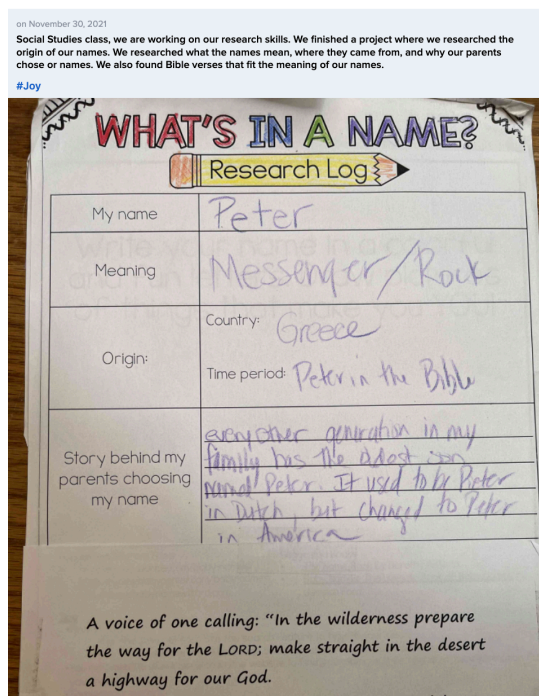 on November 30, 2021
Social Studies class, we are working on our research skills. We finished a project where we researched the
origin of our names. We researched what the names mean, where they came from, and why our parents
chose or names. We also found Bible verses that fit the meaning of our names.
#Joy
WHAT'S IN A NAME?
Research Log
My name
Peter
Meaning
Messenger/Rock
Origin:
Country: Greece
Time period: Peter in the Bible
Story behind my
parents choosing
my name
every other generation in my
family has the oldest son
named Peter. It used to be Pieter
in Dutch, but changed to Peter
in America
A voice of one calling: “In the wilderness prepare
the way for the LORD; make straight in the desert
a highway for our God.